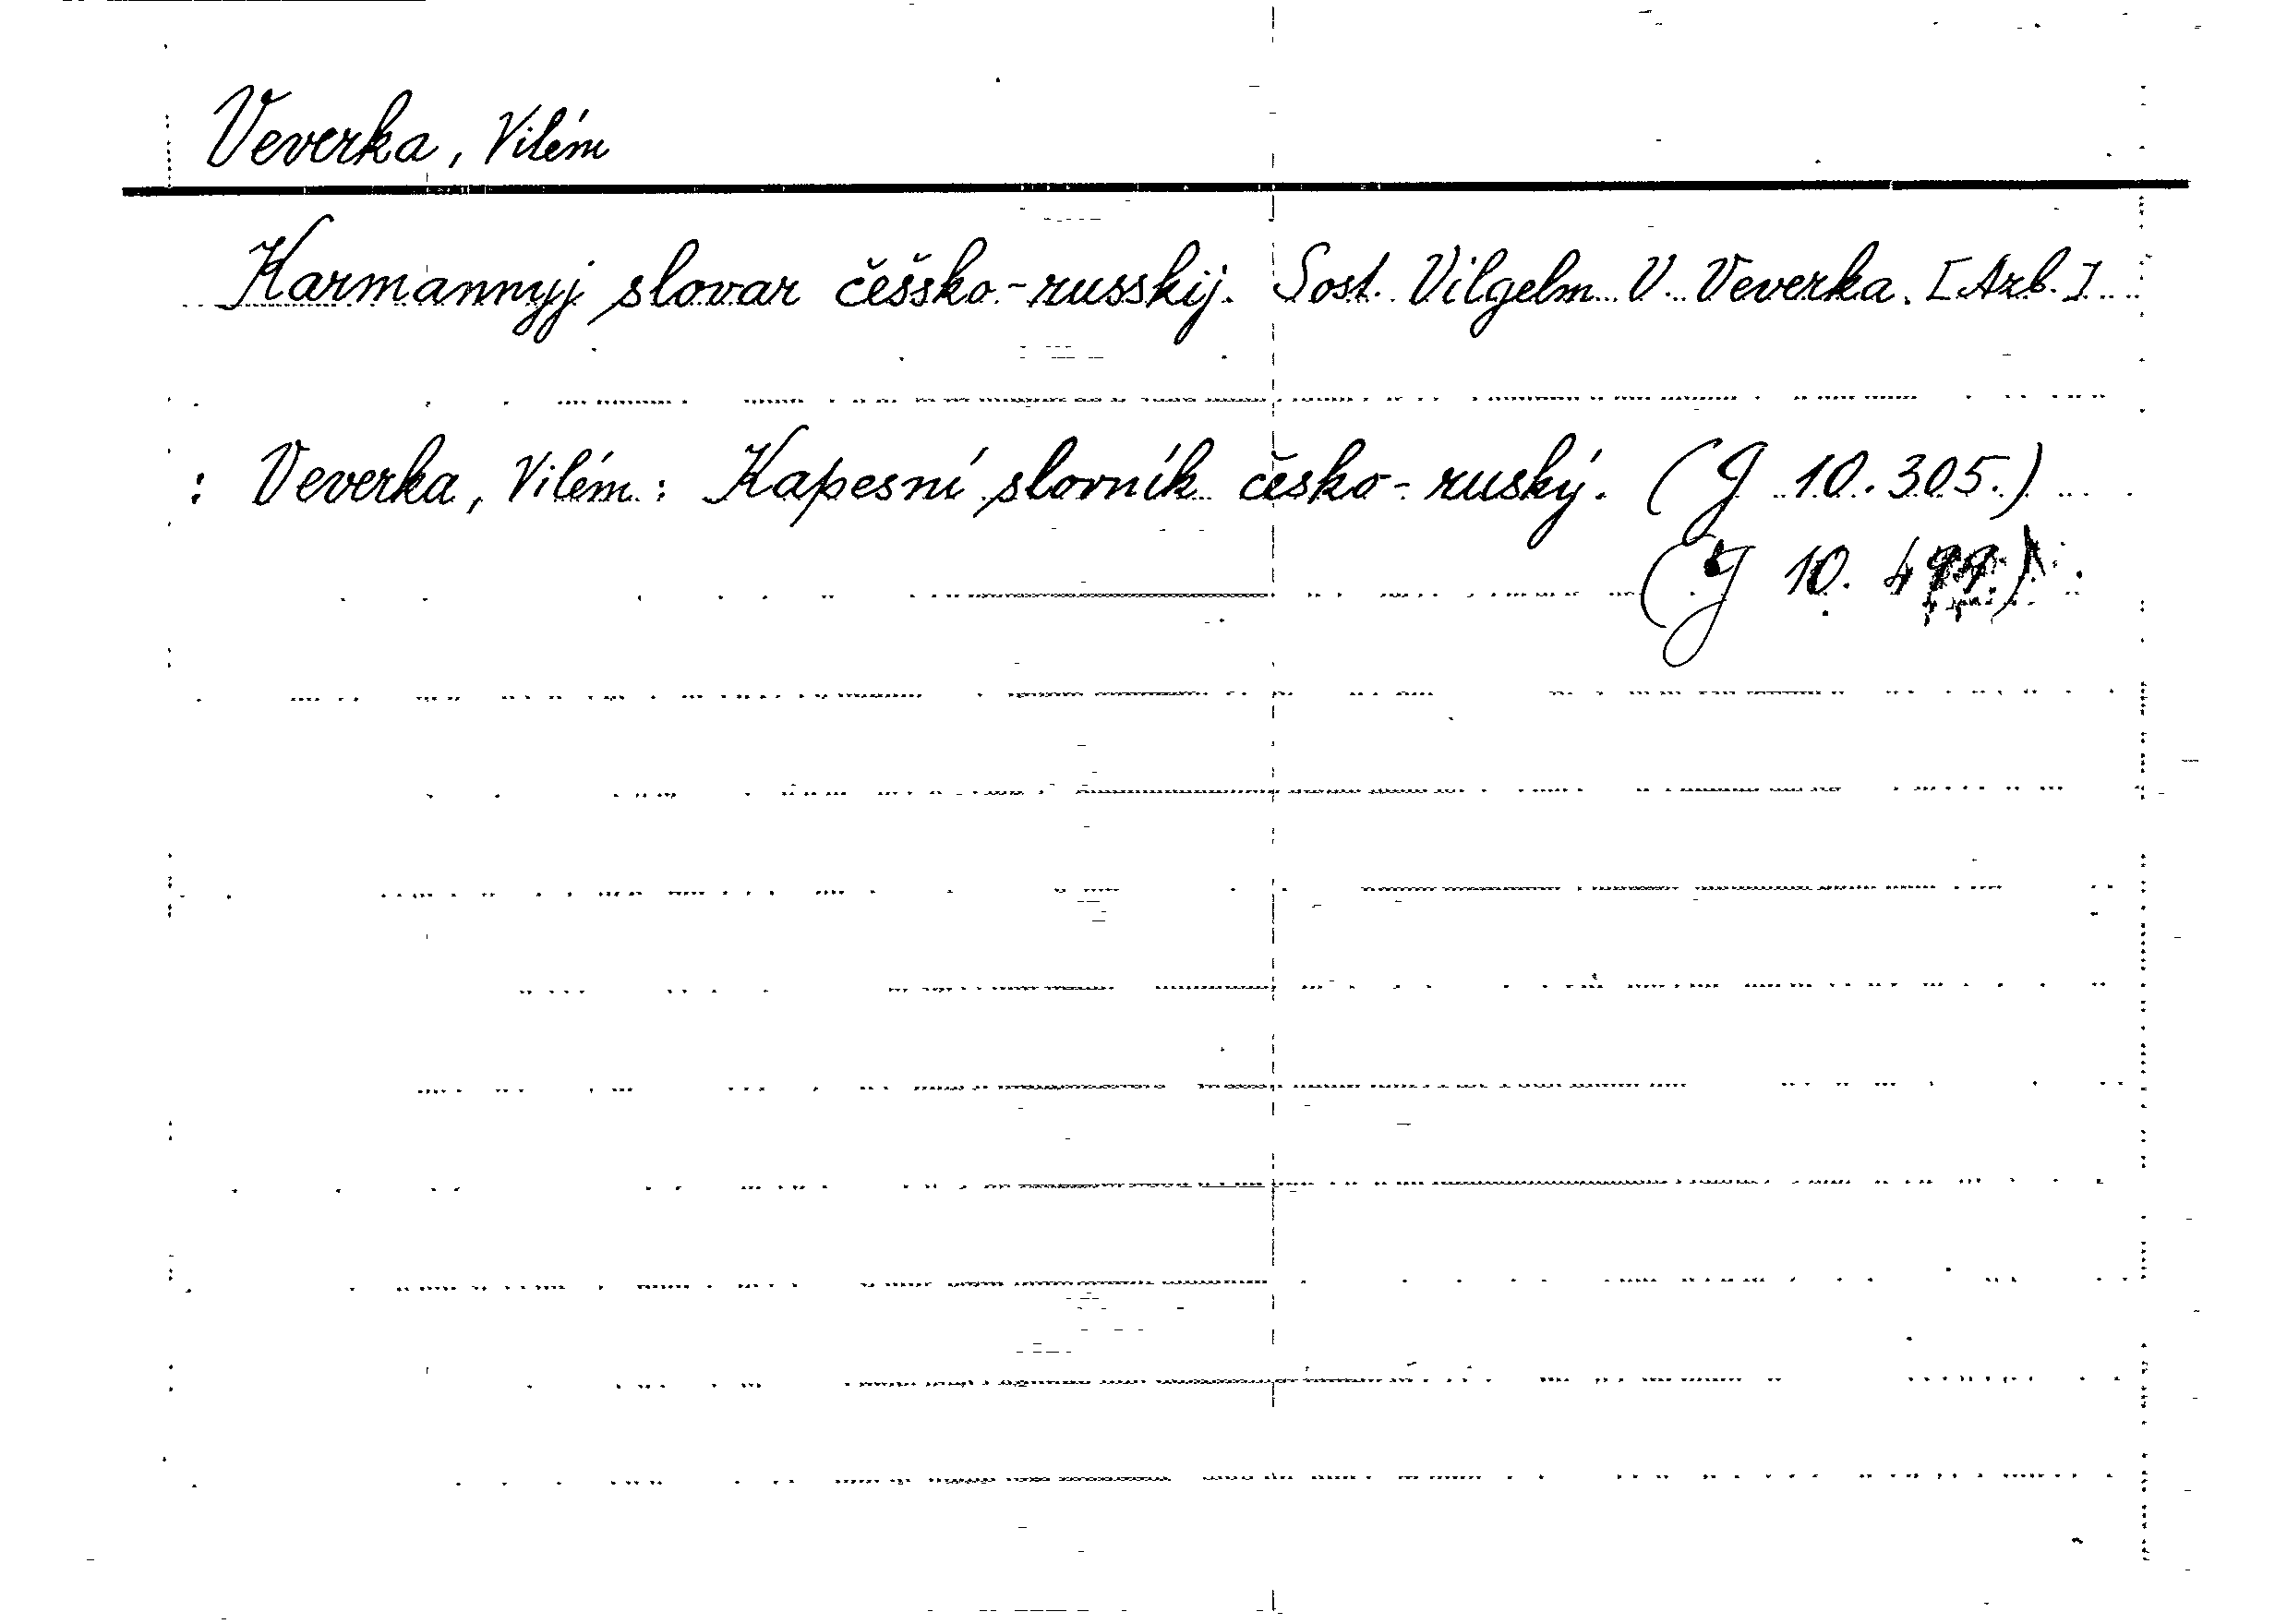 Veverka, Vilém
Karmannyj slovar češsko-russkij. Sost. Vilgelm V. Veverka. [Azb.]
: Veverka, Vilém: Kapesní slovník česko-ruský. (J 10.305.)
(J 10.